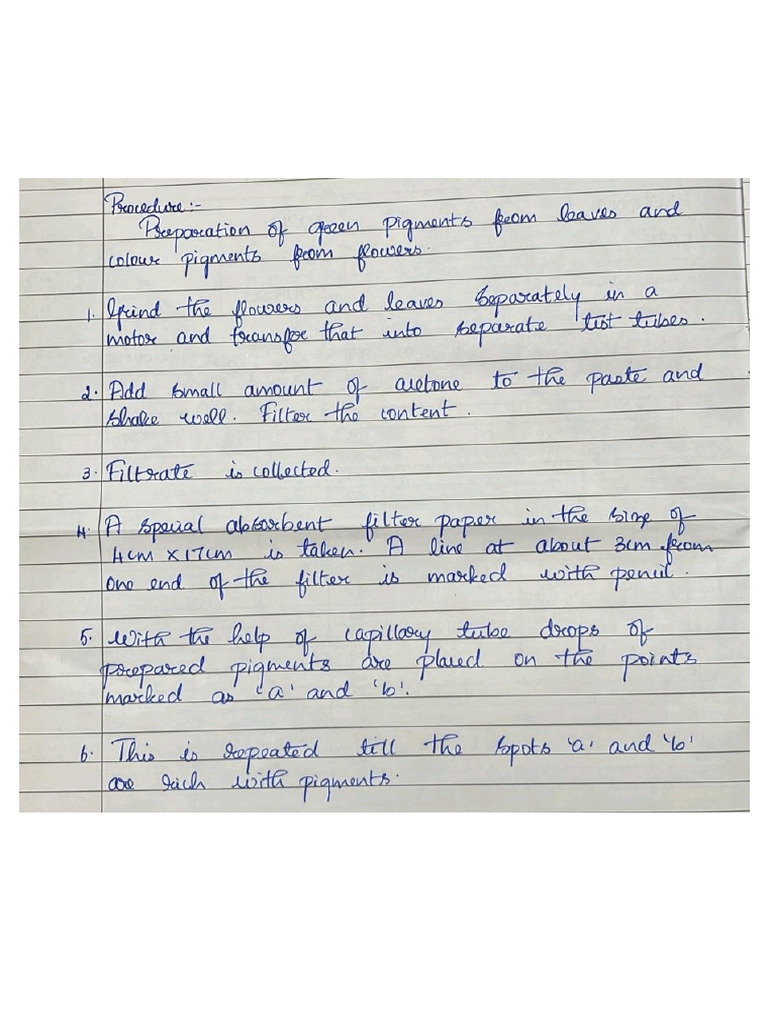 Procedure:-
Preparation of green pigments from leaves and
colour pigments from flowers.
1. Grind the flowers and leaves separately in a
motor and transfer that into separate test tubes.
2. Add small amount of acetone to the paste and
shake well. Filter the content.
3. Filtrate is collected.
4. A special absorbent filter paper in the size of
4cm x 17cm is taken. A line at about 3cm from
one end of the filter is marked with pencil.
5. With the help of capillary tube drops of
prepared pigments are placed on the points
marked as 'a' and 'b'.
6. This is repeated till the spots 'a' and 'b'
are rich with pigments.